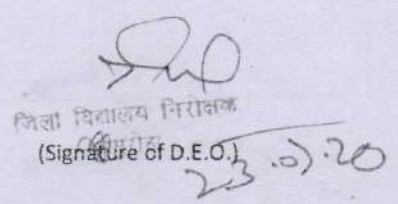 जिला विद्यालय निरीक्षक
(Signature of D.E.O.)
23.07.20